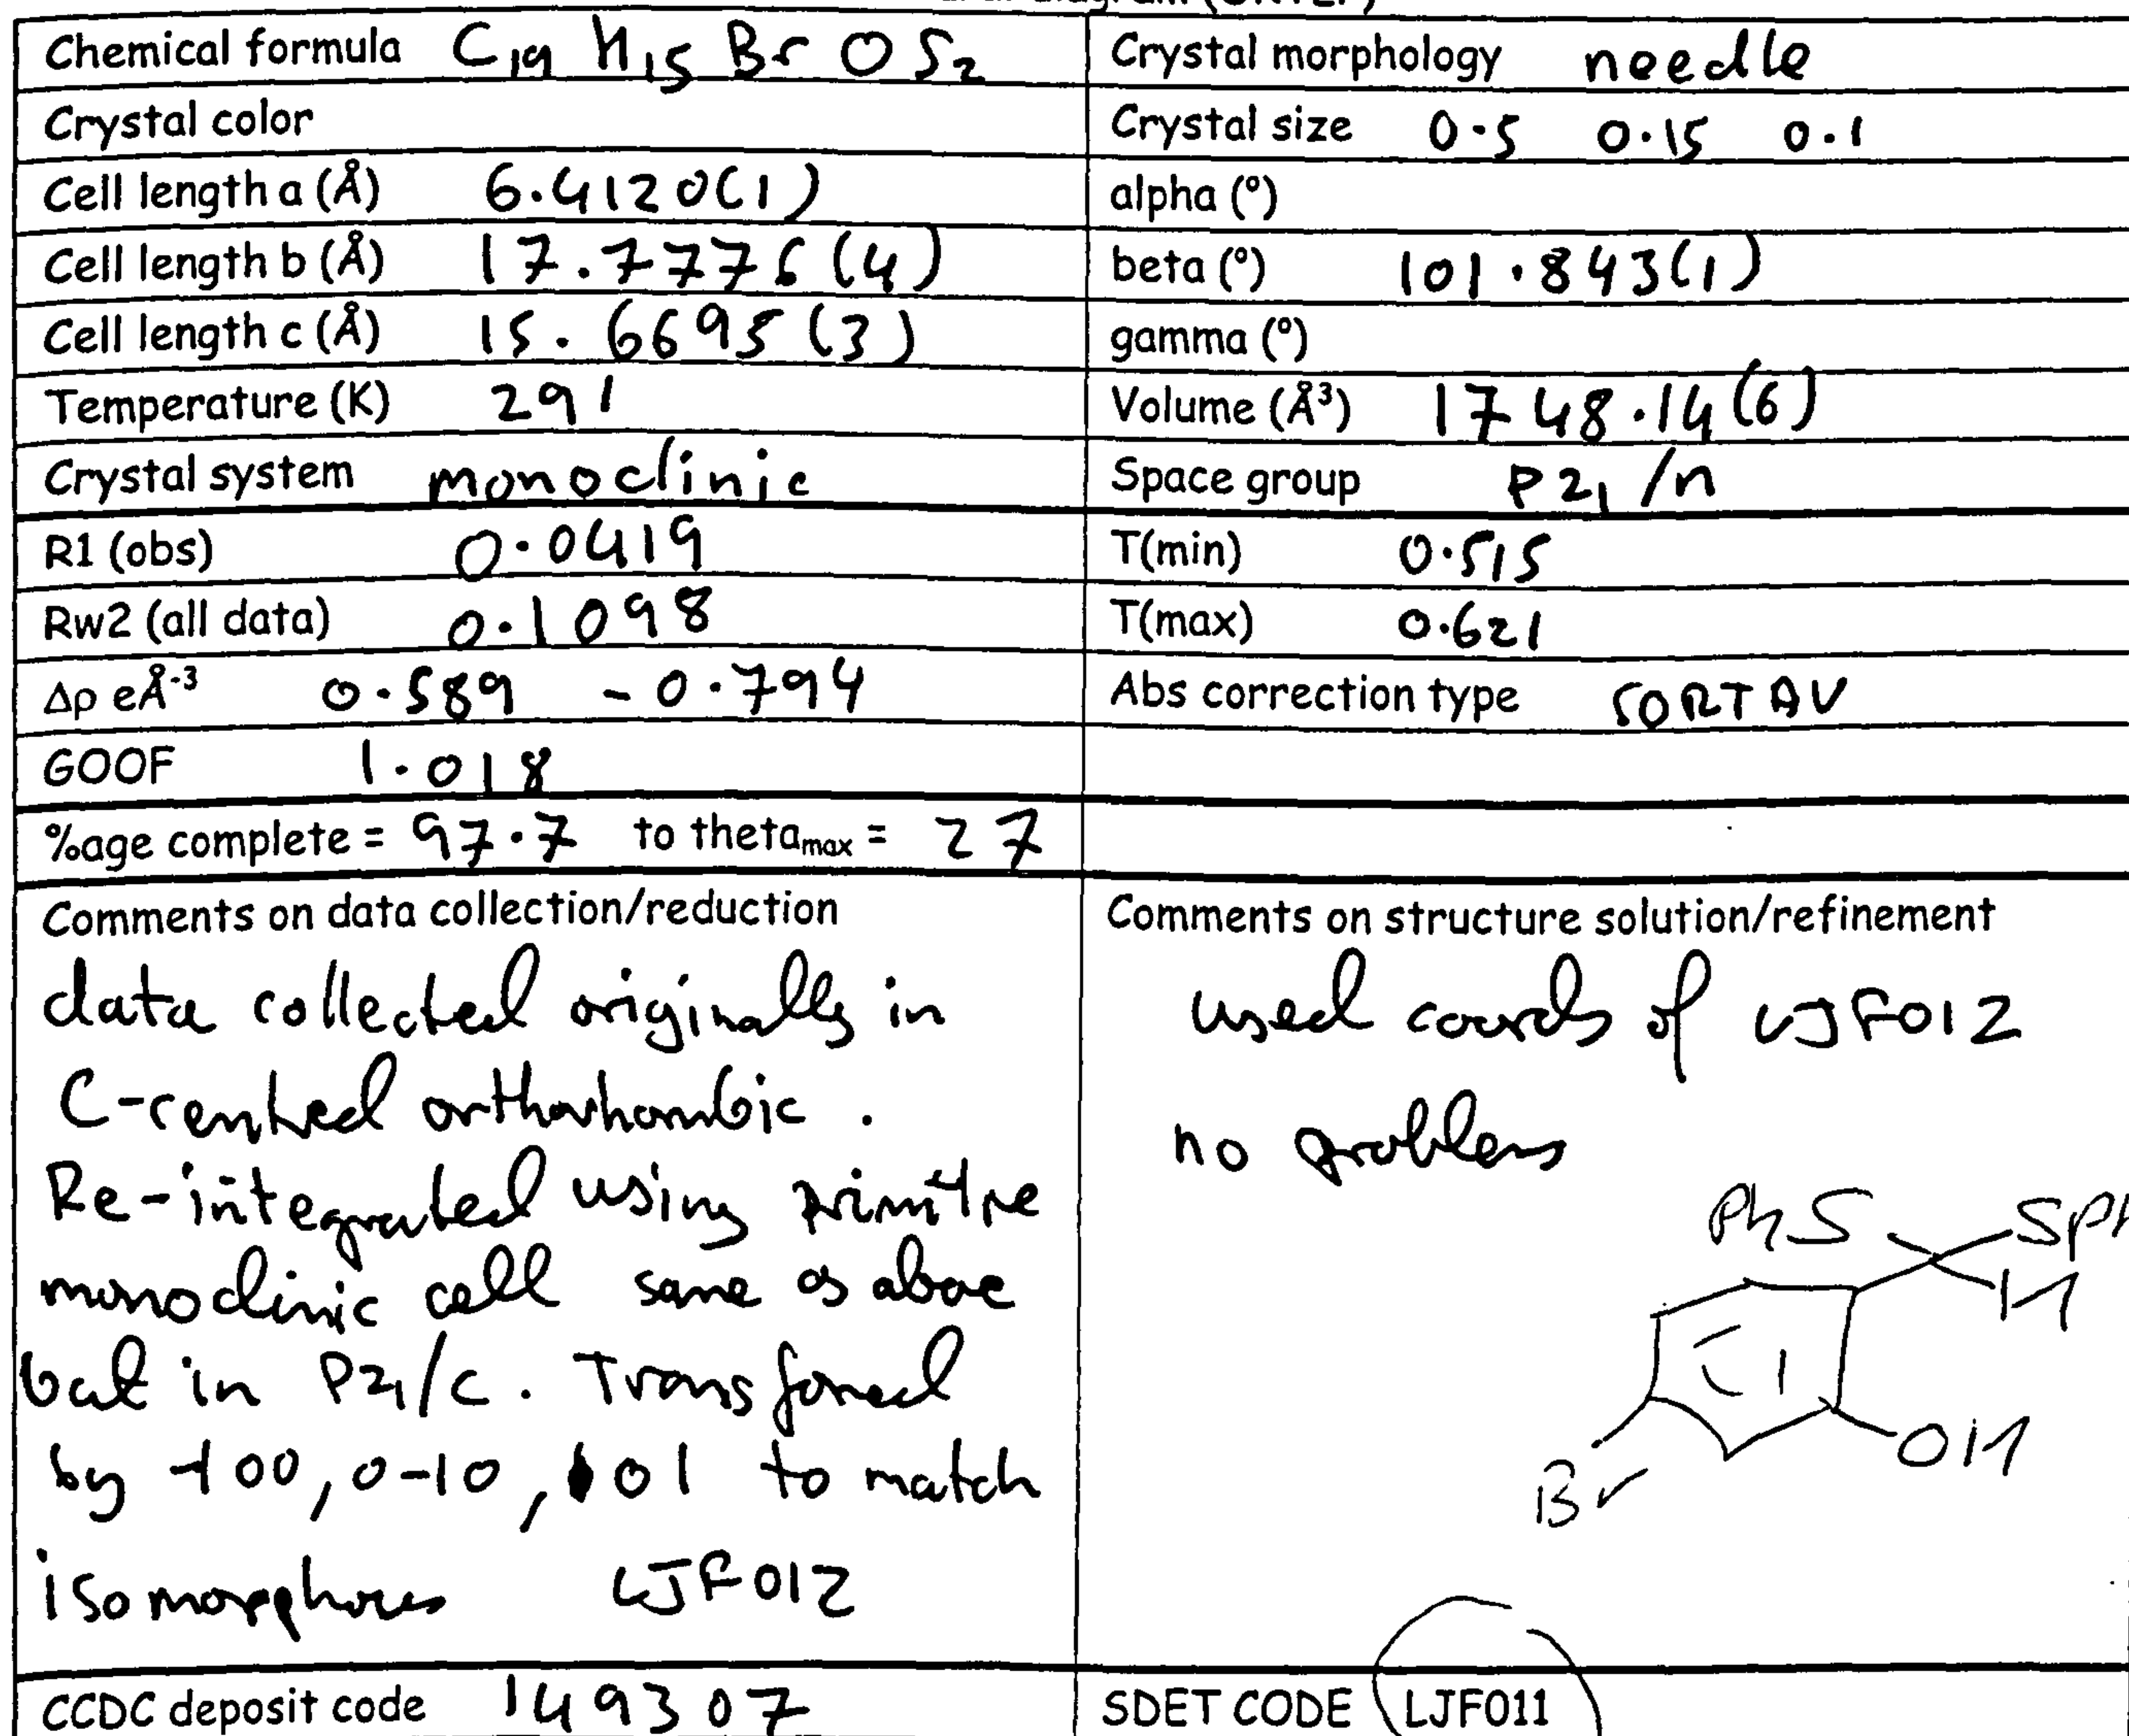 Chemical formula C19 H15 Br O S2
Crystal morphology needle
Crystal color
Crystal size 0.5 0.15 0.1
Cell length a (Å) 6.4120(1)
alpha (°)
Cell length b (Å) 17.7776(4)
beta (°) 101.843(1)
Cell length c (Å) 15.6695(3)
gamma (°)
Temperature (K) 291
Volume (Å³) 1748.14(6)
Crystal system monoclinic
Space group P21/n
R1 (obs) 0.0419
T(min) 0.515
Rw2 (all data) 0.1098
T(max) 0.621
Δρ eÅ-3 0.589 -0.794
Abs correction type SORTAV
GOOF 1.018
%age complete = 97.7 to thetamax = 27
Comments on data collection/reduction
data collected originally in
C-centred orthorhombic.
Re-integrated using primitive
monoclinic cell same as above
but in P21/c. Transformed
by -100, 0-10, 101 to match
isomorphous LJF012
Comments on structure solution/refinement
used coords of LJF012
no problems
PhS SPh
H
OH
Br
CCDC deposit code 149307
SDET CODE LJF011